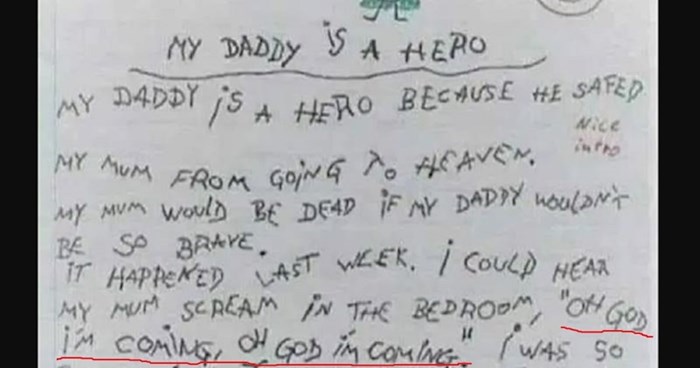 MY DADDY iS A HERO
MY DADDY iS A HERO BECAUSE HE SAFED
Nice
intro
MY MUM FROM GOiNG TO HEAVEN.
MY MUM WOULD BE DEAD iF MY DADDY WOULDN'T
BE SO BRAVE.
iT HAPPENED LAST WEEK. i COULD HEAR
MY MUM SCREAM iN THE BEDROOM, "OH GOD
i'M COMiNG, OH GOD i'M COMiNG." i WAS SO